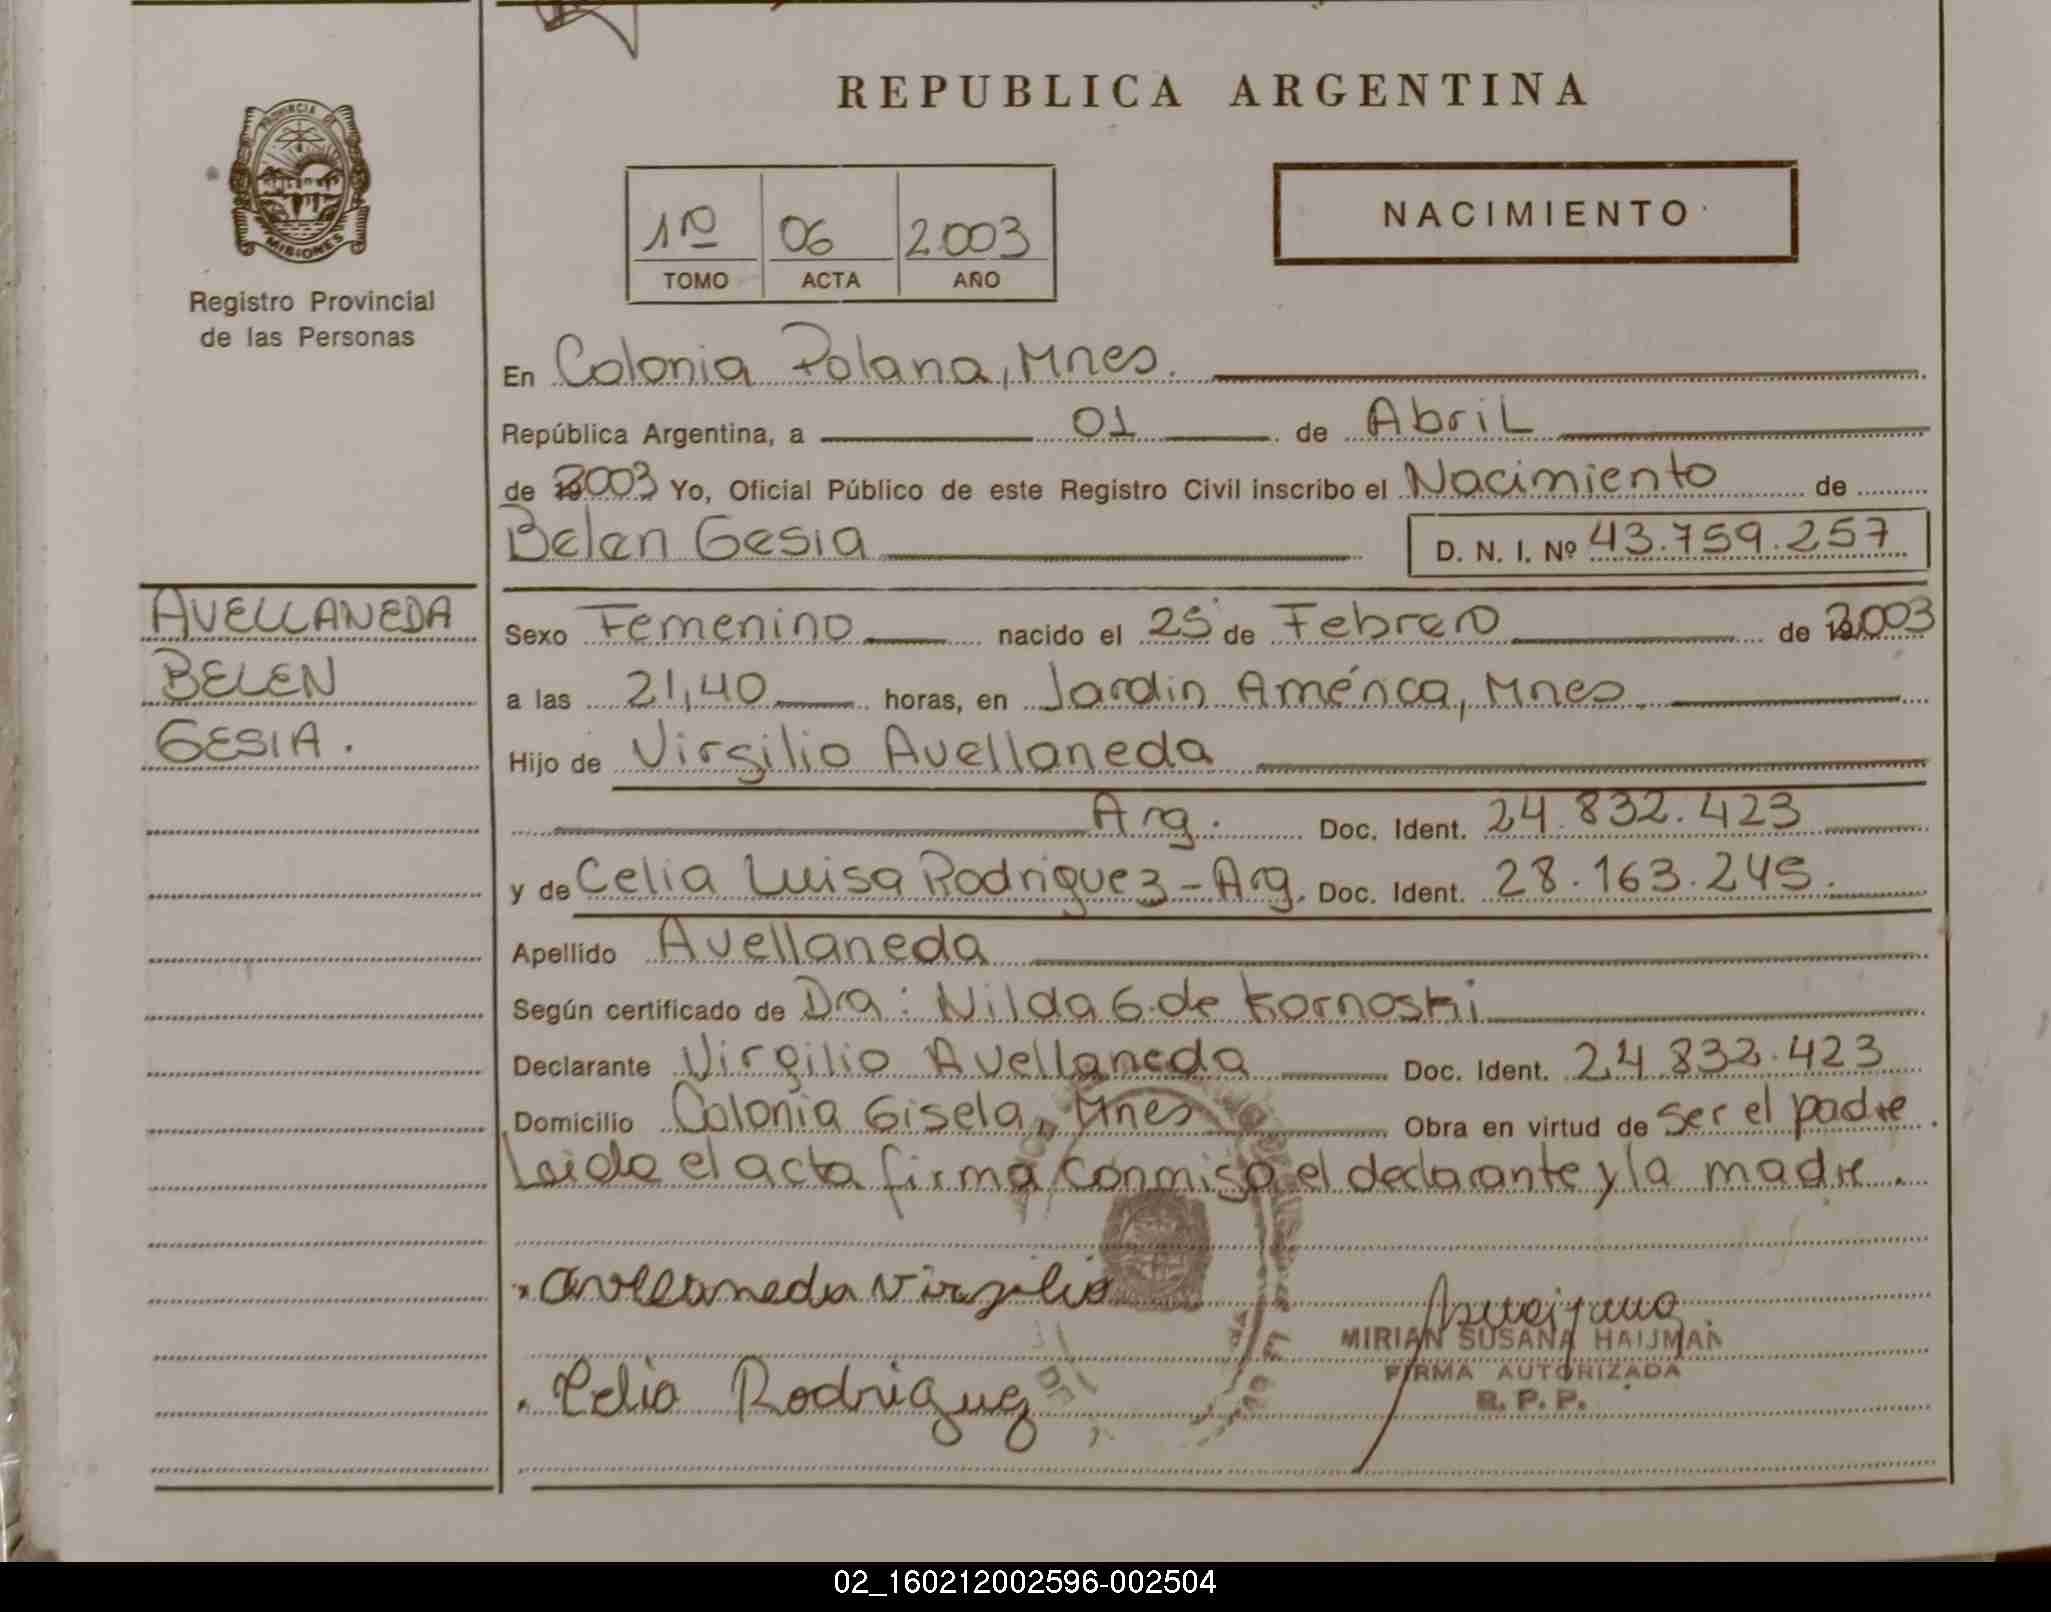 REPUBLICA ARGENTINA
PROVINCIA DE
MISIONES
Registro Provincial
de las Personas
1º 06 2.003
TOMO ACTA AÑO
NACIMIENTO
En Colonia Polana, Mnes.
República Argentina, a 01 de Abril
de 2003 Yo, Oficial Público de este Registro Civil inscribo el Nacimiento de
Belen Gesia D. N. I. Nº 43.759.257
AVELLANEDA
BELEN
GESIA.
Sexo Femenino nacido el 25 de Febrero de 2003
a las 21,40 horas, en Jardin América, Mnes.
Hijo de Virgilio Avellaneda
Arg. Doc. Ident. 24.832.423
y de Celia Luisa Rodriguez - Arg. Doc. Ident. 28.163.245.
Apellido Avellaneda
Según certificado de Dra: Nilda G. de Kornoski
Declarante Virgilio Avellaneda Doc. Ident. 24.832.423
Domicilio Colonia Gisela, Mnes Obra en virtud de ser el padre.
Leida el acta firma conmigo el declarante y la madre.
Avellaneda Virgilio
MIRIAN SUSANA HAIJMAN
FIRMA AUTORIZADA
R. P. P.
Celia Rodriguez
02_160212002596-002504